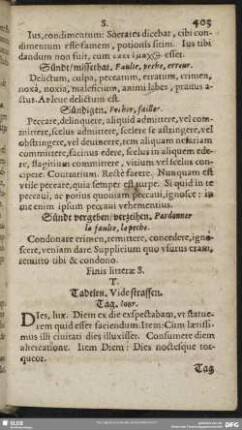 S. 405
Ius, condimentum: Socrates dicebat, cibi con-
dimentum esse famem, potionis sitim. Ius tibi
dandum non fuit, cum esset.
Sündt/missethat. Faulte, peche, erreur.
Delictum, culpa, peccatum, erratum, crimen,
noxa, noxia, maleficium, animi labes, pravus a-
ctus. A delictum est.
Sündigen. Pecher, failler.
Peccare, delinquere, aliquid admittere, vel com-
mittere, scelus admittere, scelere se astringere, vel
obstringere, vel devincere, rem aliquam nefariam
committere, facinus edere, scelus in aliquem ede-
re, flagitium committere, vitium vel scelus conci-
pere. Contrarium. Recte facere. Nunquam est
vtile peccare, quia semper est turpe. Si quid in te
peccaui, ac potius quoniam peccaui, ignosce: in
me enim ipsum peccaui vehementius.
Sündt vergeben/verzeihen. Pardonner
la faulte, le peche.
Condonare crimen, remittere, concedere, igno-
scere, veniam dare. Supplicium quo vsurus eram,
remitto tibi & condono.
Finis litteræ S.
T.
Tadelen. Vide straffen.
Tag. Iour.
DIes, lux. Diem ex die exspectabam, vt statue-
rem quid esset faciendum. Item: Cum lætissi-
mus illi ciuitati dies illuxisset. Consumere diem
altercatione. Item Diem: Dies noctesque tor-
queor.
Tag
SLUB
DFG